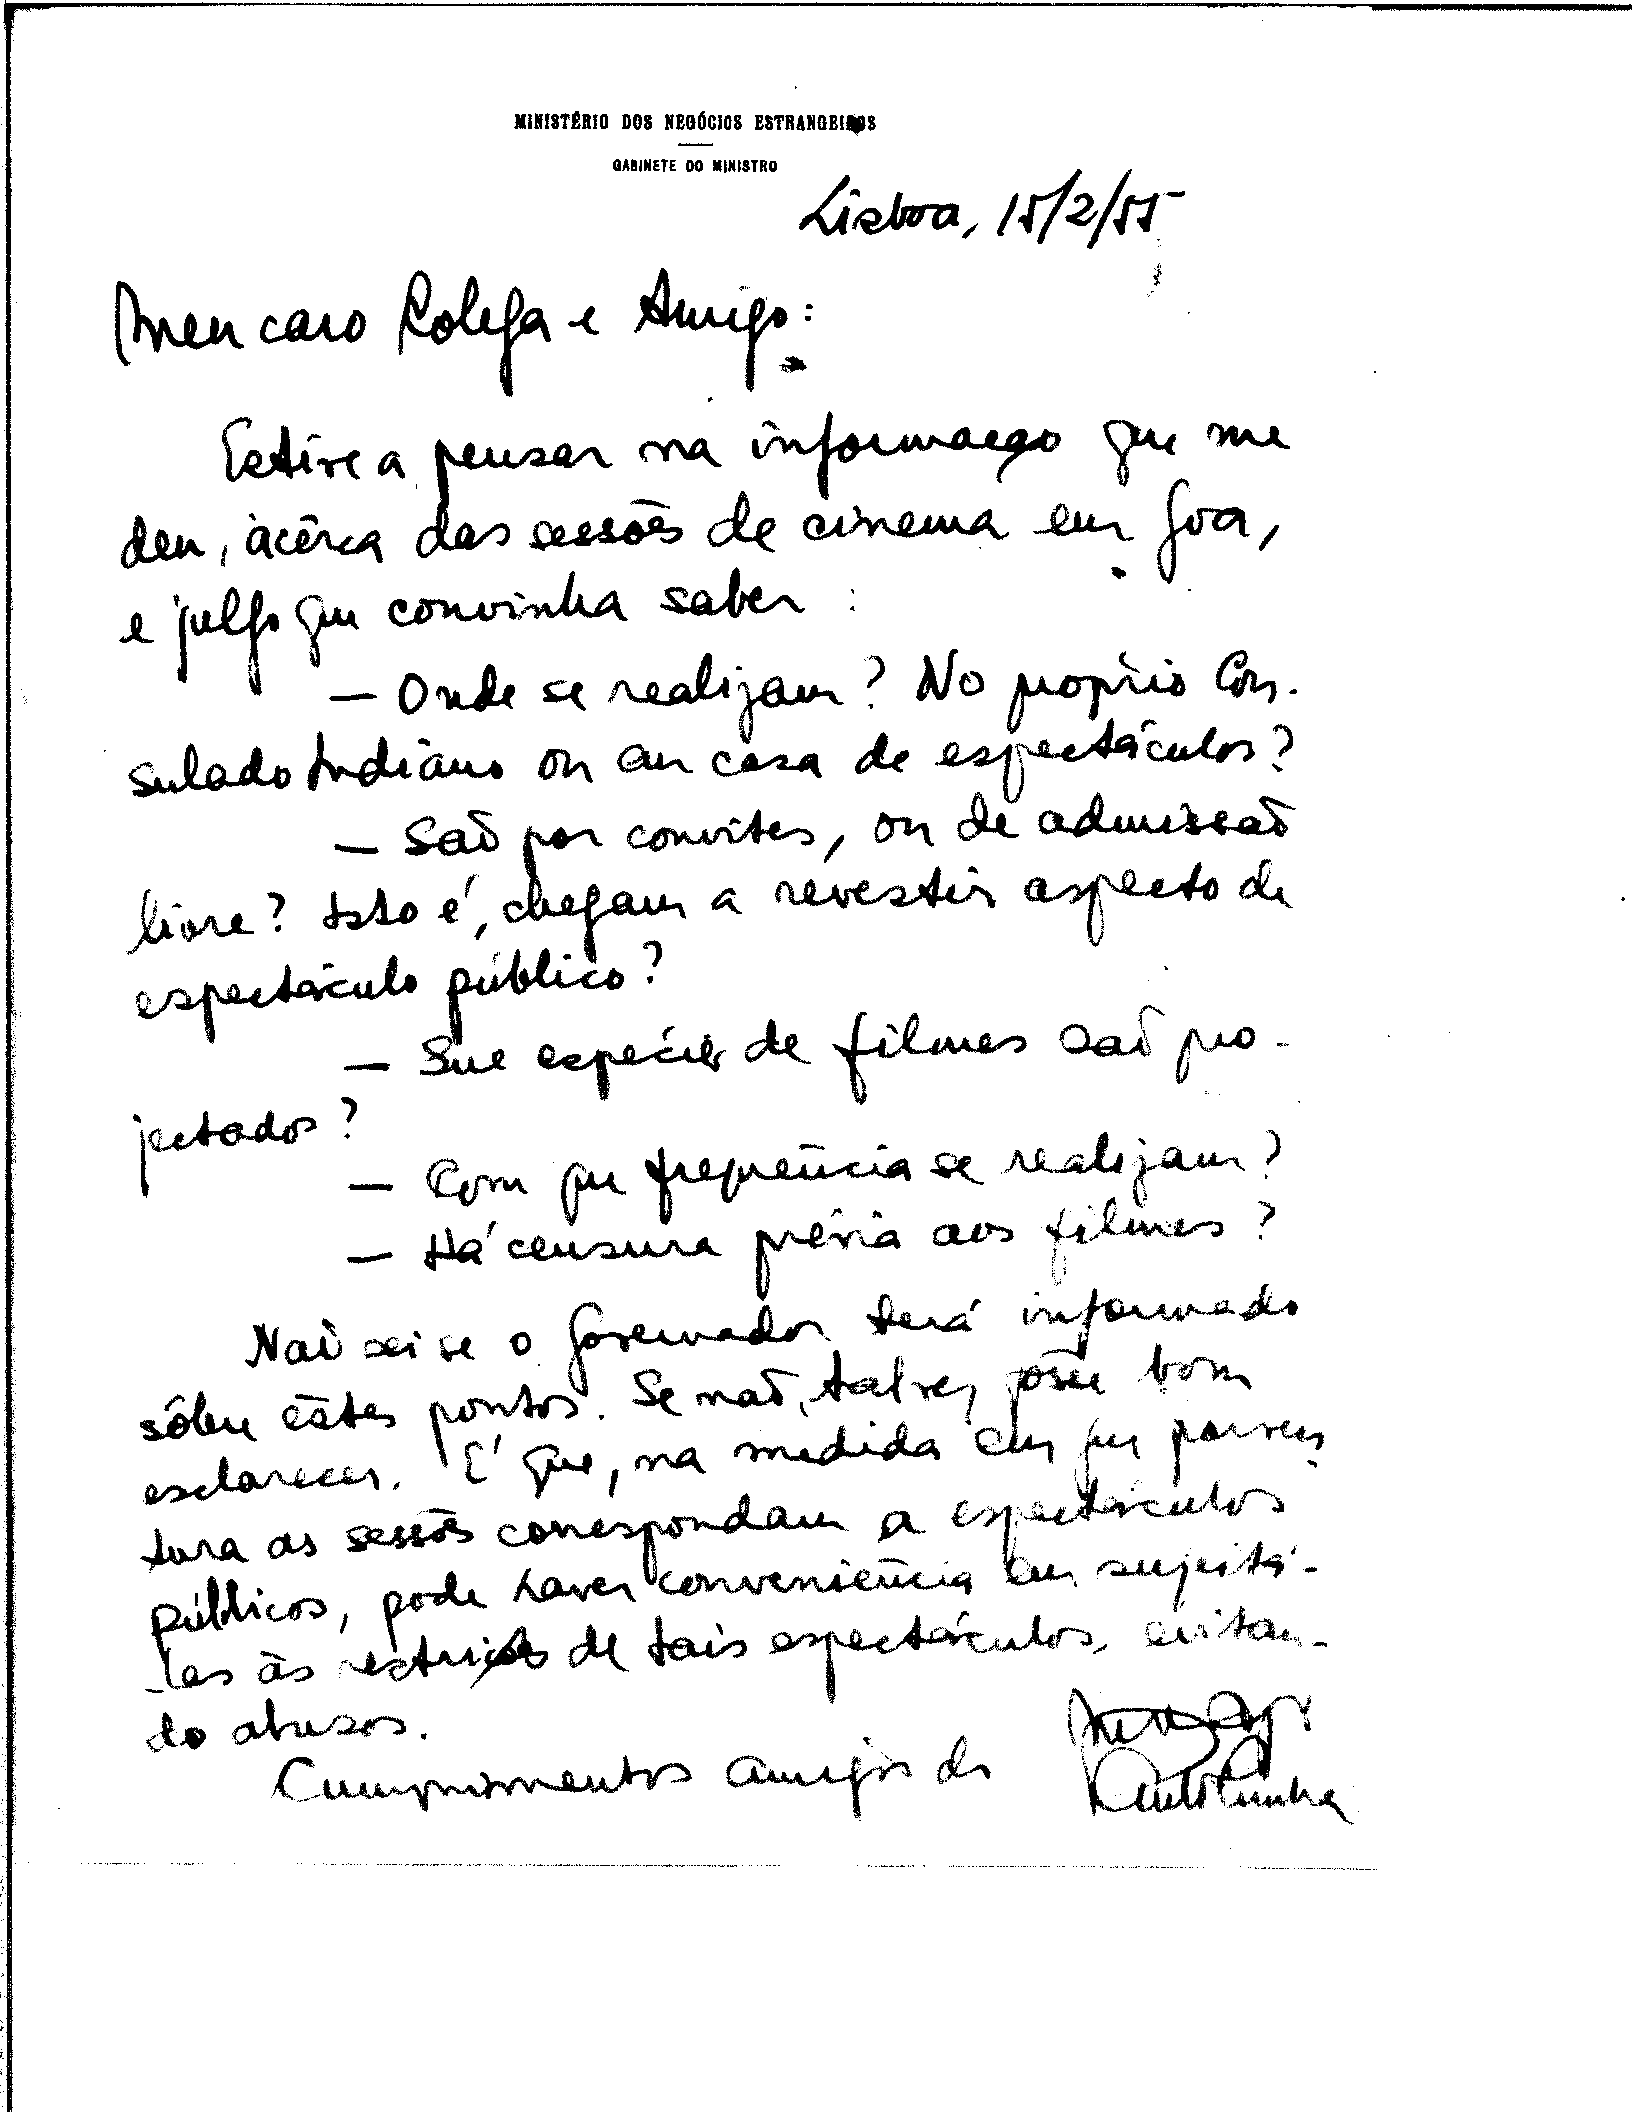 MINISTÉRIO DOS NEGÓCIOS ESTRANGEIROS
GABINETE DO MINISTRO
Lisboa, 15/2/55
Meu caro Colega e Amigo:
Estive a pensar na informação que me
deu, àcêrca das sessões de cinema em Goa,
e julgo que convinha saber:
— Onde se realizam? No próprio Con-
sulado Indiano ou em casa de espectáculos?
— São por convites, ou de admissão
livre? Isto é, chegam a revestir aspecto de
espectáculo público?
— Que espécie de filmes são pro-
jectados?
— Com que frequência se realizam?
— Há censura prévia aos filmes?
Não sei se o Governador terá informado
sôbre êstes pontos. Se não, talvez fôsse bom
esclarecer. É que, na medida em que porven-
tura as sessões correspondam a espectáculos
públicos, pode haver conveniência em sujeitá-
-las às de tais espectáculos, evitan-
do abusos.
Cumprimentos amigos do
Cunha